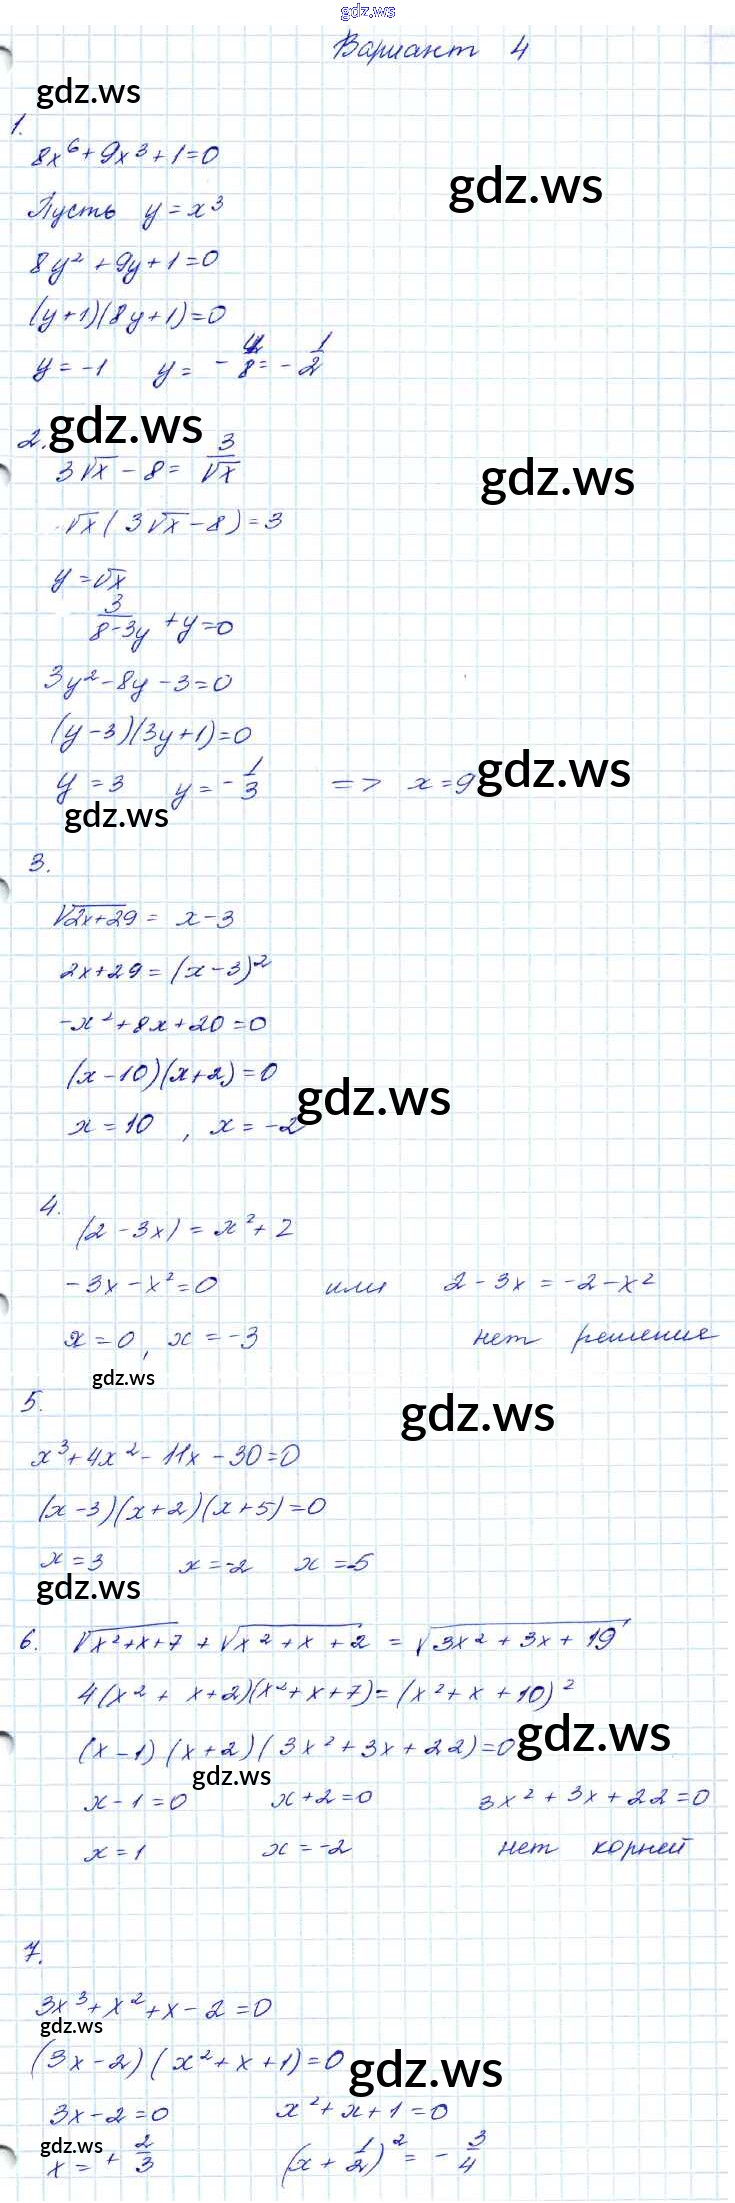 gdz.ws
Вариант 4
gdz.ws
1.
8x⁶+9x³+1=0
gdz.ws
Пусть y=x³
8y²+9y+1=0
(y+1)(8y+1)=0
y=-1 y= - /8= - 1/2
gdz.ws
2. 3√x - 8 = 3/√x
gdz.ws
√x(3√x-8)=3
y=√x
3/(8-3y) + y=0
3y²-8y-3=0
(y-3)(3y+1)=0
y=3 y=-1/3 => x=9
gdz.ws
gdz.ws
3.
√(2x+29) = x-3
2x+29=(x-3)²
-x²+8x+20=0
(x-10)(x+2)=0
gdz.ws
x=10 , x=-2
4.
(2-3x) = x²+2
-3x-x²=0 или 2-3x=-2-x²
x=0, x=-3 нет решение
gdz.ws
5.
gdz.ws
x³+4x²-11x-30=0
(x-3)(x+2)(x+5)=0
x=3 x=-2 x=-5
gdz.ws
6. √(x²+x+7) + √(x²+x+2) = √(3x²+3x+19)
4(x²+x+2)(x²+x+7)=(x²+x+10)²
gdz.ws
(x-1)(x+2)(3x²+3x+22)=0
gdz.ws
x-1=0 x+2=0 3x²+3x+22=0
x=1 x=-2 нет корней
7.
3x³+x²+x-2=0
gdz.ws
(3x-2)(x²+x+1)=0
gdz.ws
3x-2=0 x²+x+1=0
gdz.ws
x=+2/3 (x+1/2)²=-3/4